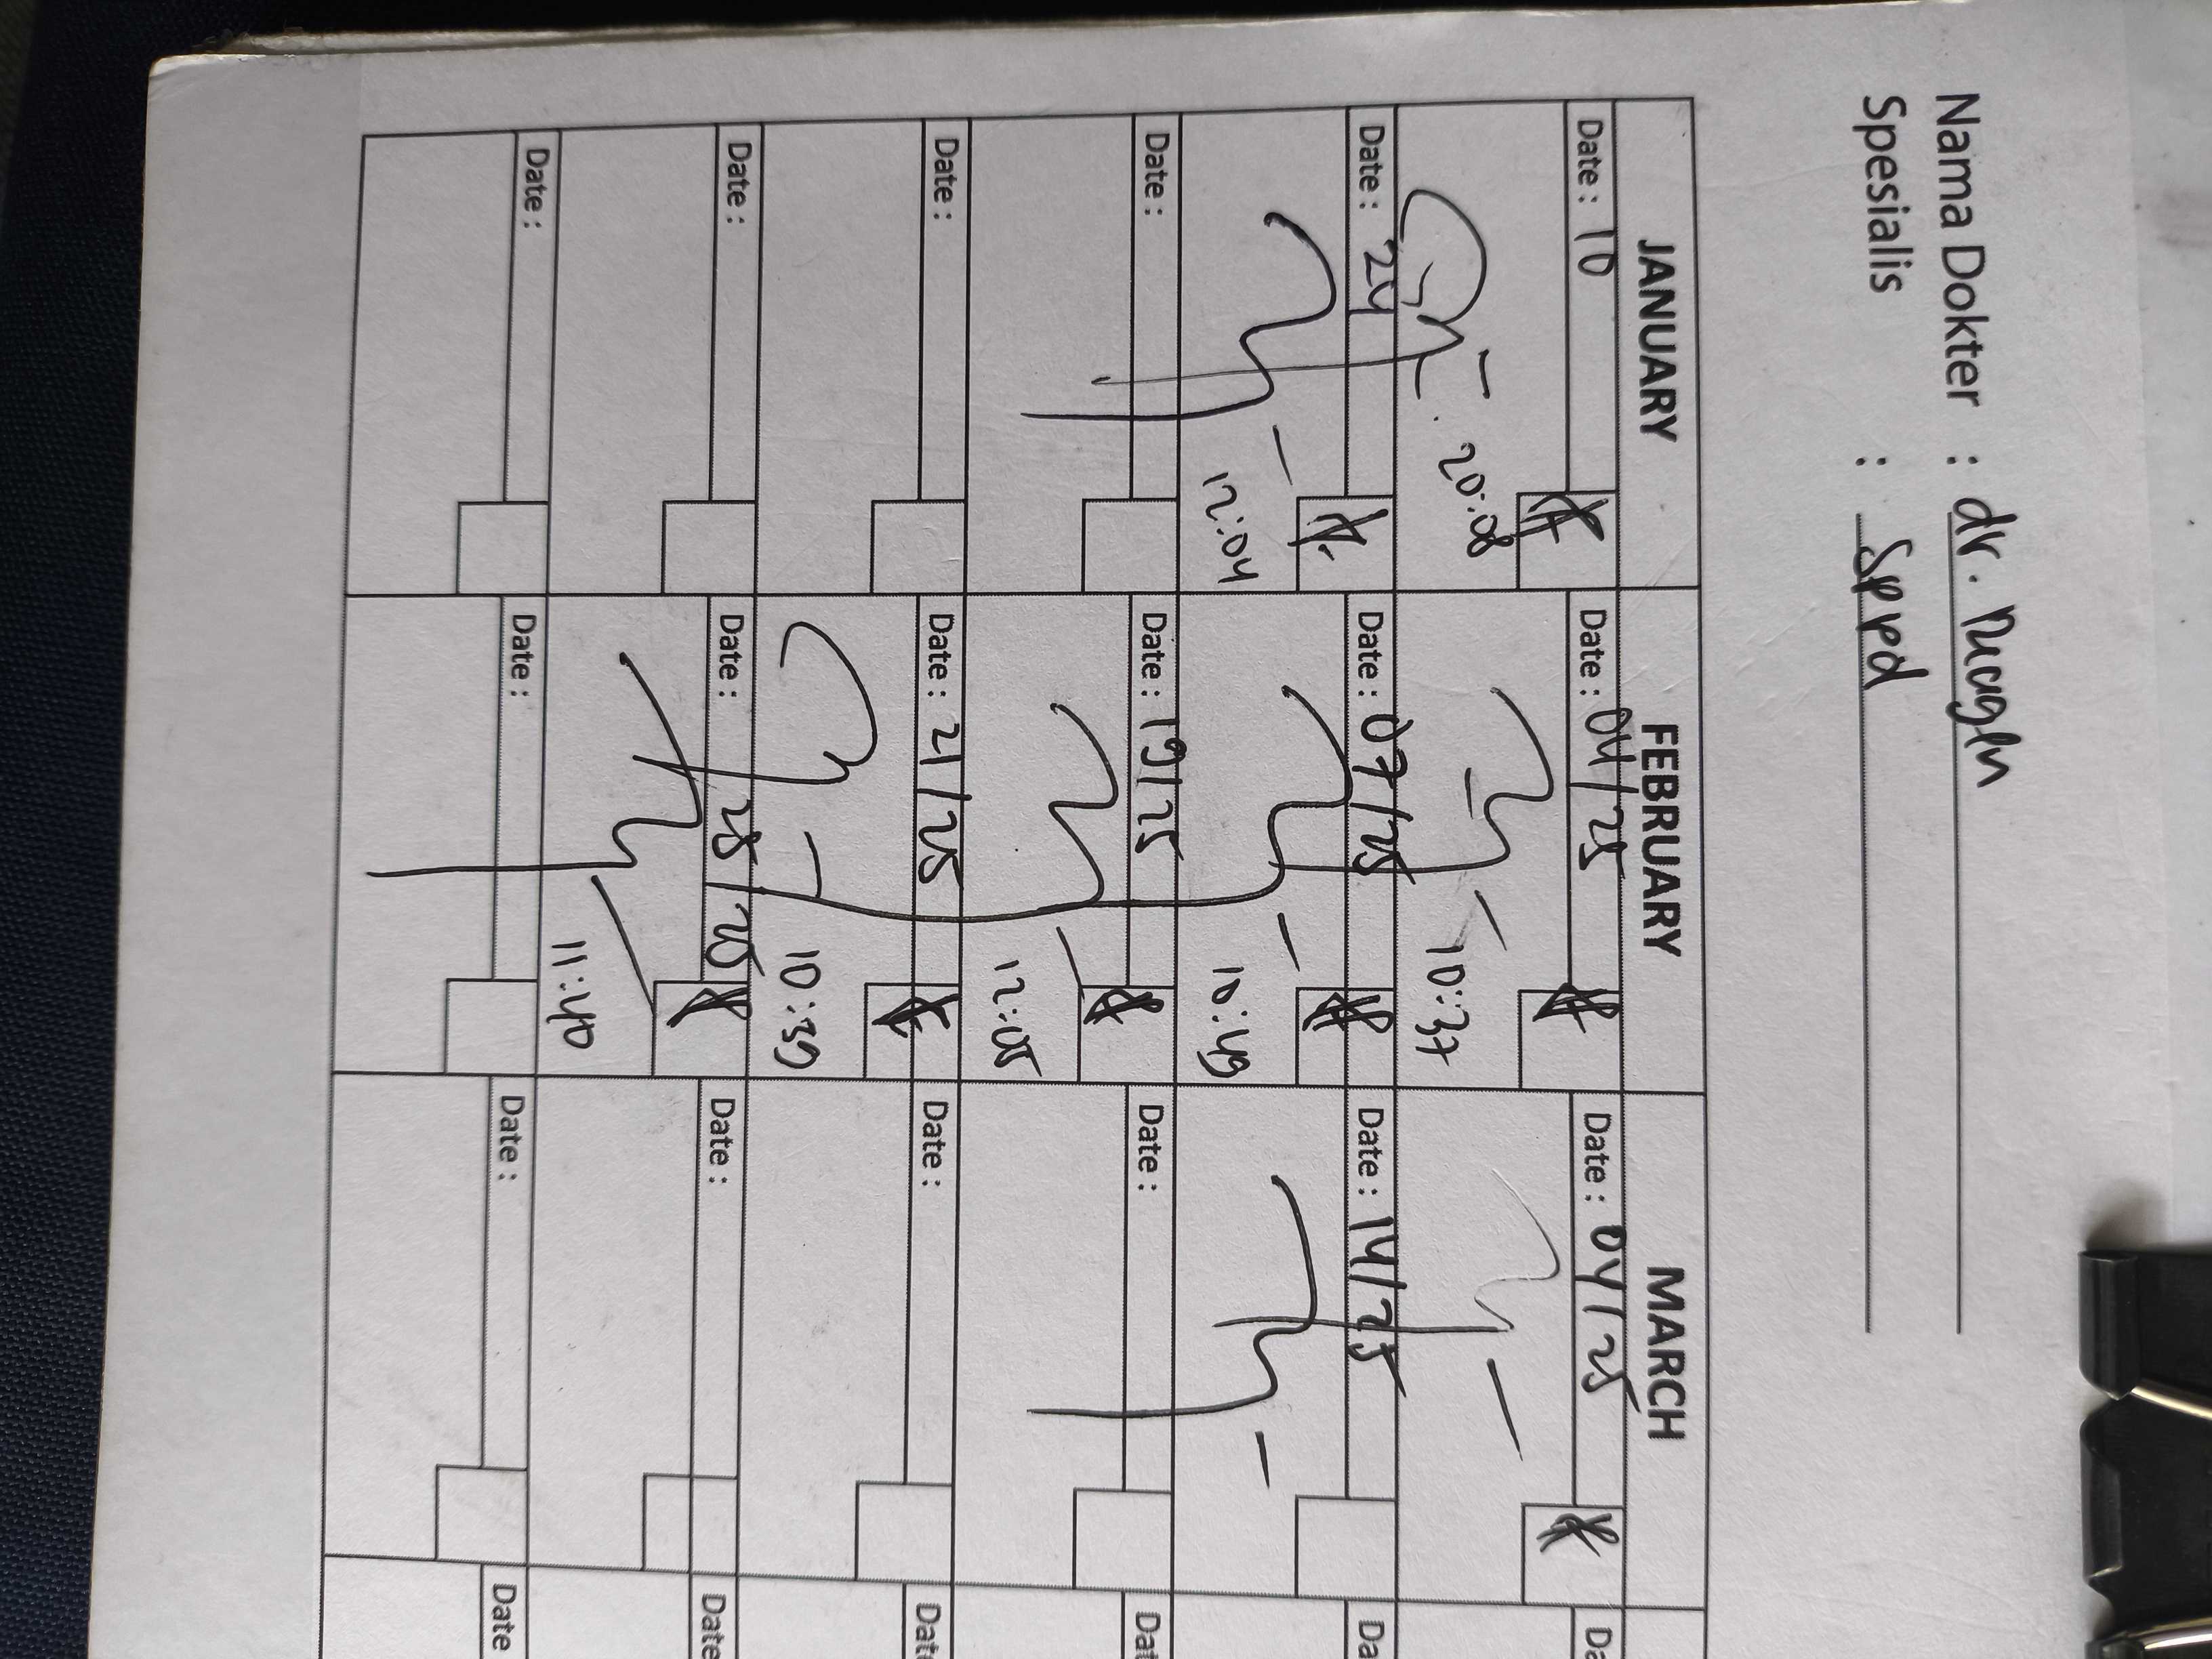 Nama Dokter : dr.
Spesialis : Sppd
JANUARY FEBRUARY MARCH
Date : 10 Date : 04/25 Date : 04/25 Da
20:08 10:37
Date : 24 Date : 07/25 Date : 14/25 Da
12:04 10:49
Date : Date : 19/25 Date : Dat
12:05
Date : Date : 21/25 Date : Date
10:39
Date : Date : 28/25 Date : Date
11:40
Date : Date : Date : Date